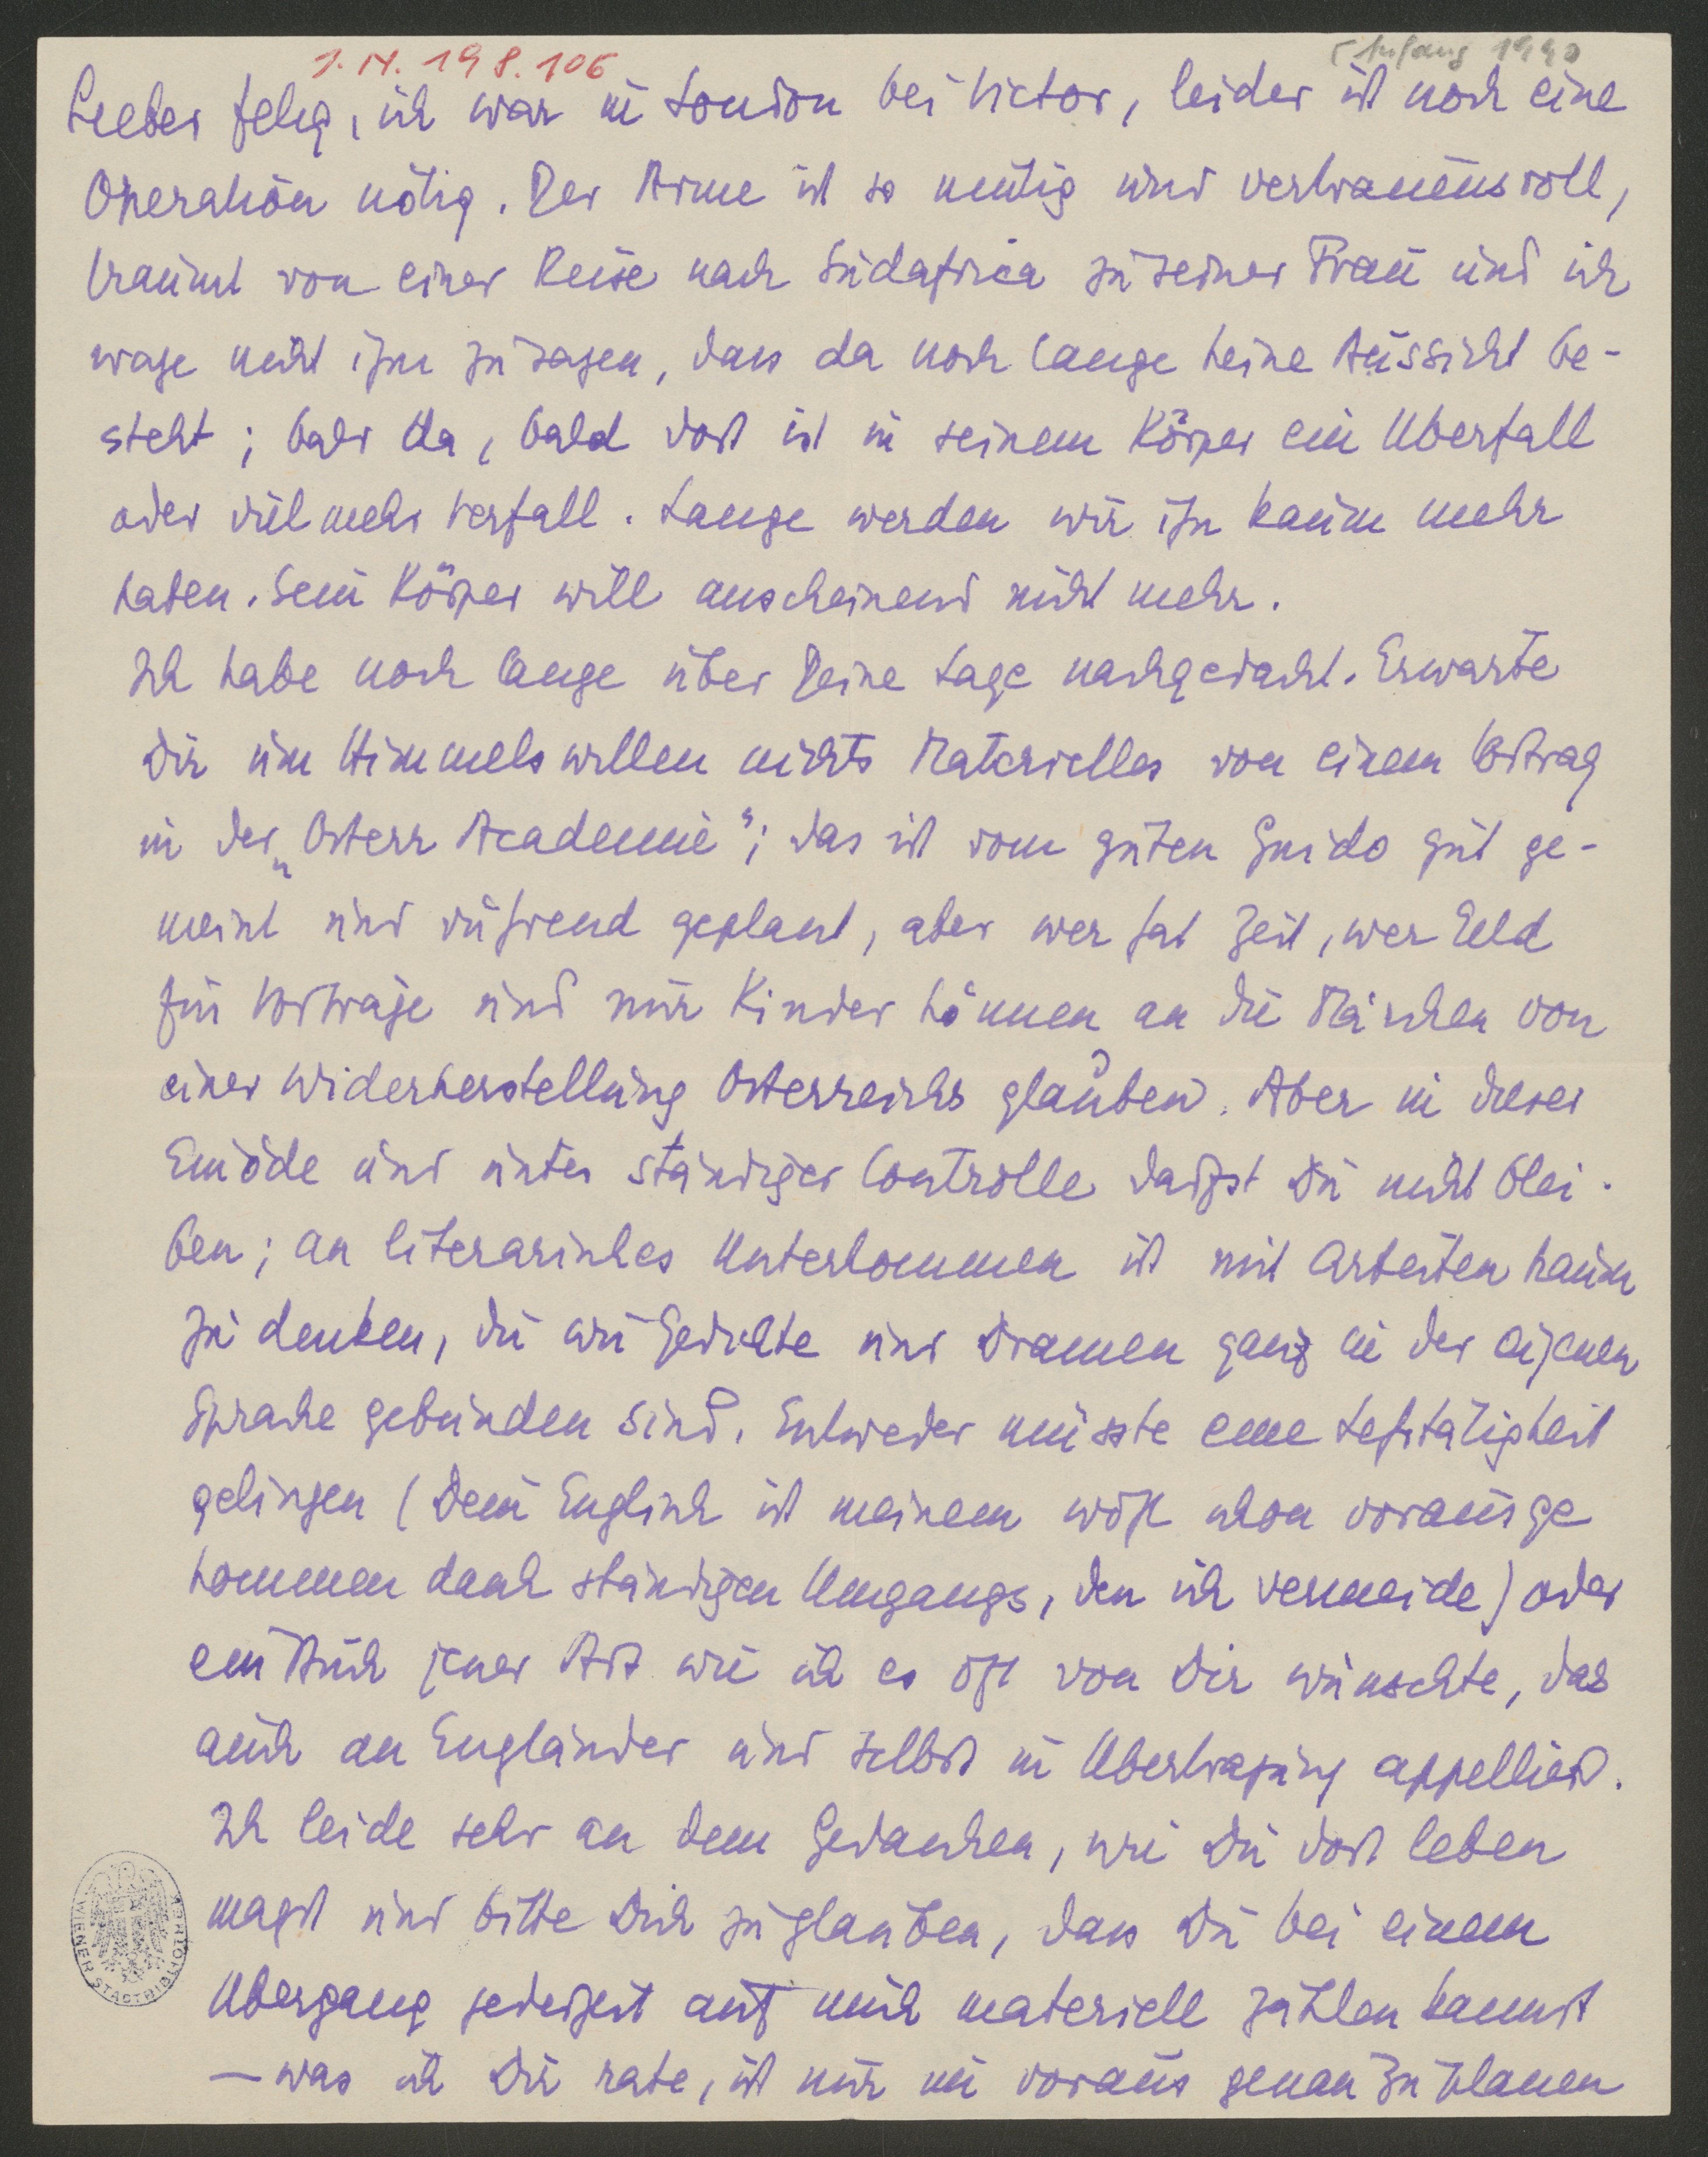 J. N. 198.106
[Anfang 1940
Lieber Felix, ich war in London bei Victor, leider ist noch eine
Operation nötig. Der Arme ist so mutig und vertrauensvoll,
träumt von einer Reise nach Südafrica zu seiner Frau und ich
wage nicht ihm zu sagen, dass da noch lange keine Aussicht be-
steht; bald da, bald dort ist in seinem Körper ein Uberfall
oder vielmehr Verfall. Lange werden wir ihn kaum mehr
haben. Sein Körper will anscheinend nicht mehr.
Ich habe noch lange über Deine Lage nachgedacht. Erwarte
Dir um Himmels willen nichts Materielles von einem Vortrag
in der „Österr Academie“; das ist vom guten Guido gut ge-
meint und rührend geplant, aber wer hat Zeit, wer Geld
für Vorträge und nur Kinder können an die Märchen von
einer Widerherstellung Österreichs glauben. Aber in dieser
Einöde und unter ständiger Controlle darfst Du nicht blei-
ben; an literarisches Unterkommen ist mit Arbeiten kaum
zu denken, die wie Gedichte und Dramen ganz in der eigenen
Sprache gebunden sind. Entweder müsste eine Lehrtätigkeit
gelingen (Dein Englisch ist meinem wohl schon vorausge
kommen dank ständigen Umgangs, den ich vermeide) oder
ein Buch jener Art wie ich es oft von Dir wünschte, das
auch an Engländer und selbst in Ubertragung appelliert.
Ich leide sehr an dem Gedanken, wie Du dort leben
magst und bitte Dich zu glauben, dass Du bei einem
Ubergang jederzeit auf mich materiell zählen kannst
— was ich Dir rate, ist nur im voraus genau zu planen
WIENER STADTBIBLIOTHEK